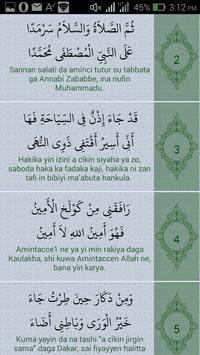 3:12 PM
ثُمَّ الصَّلَاةُ وَالسَّلَامُ سَرْمَدًا
عَلَى النَّبِيِّ الْمُصْطَفَى مُحَمَّدًا
Sannan salati da aminci tutur su tabbata
ga Annabi Zababbe, ina nufin
Muhammadu.
2
قَدْ جَاءَ إِذْنٌ فِي السِّيَاحَةِ فَهَا
أَنِّي أَسِيرُ أَقْتَفِي ذَوِي النُّهَى
Hakika yin izini a cikin siyaha ya zo,
saboda haka ka fadaka kaji, hakika ni zan
tafi in bibiyi ma'abuta hankula.
3
رَافَقَنِي مِنْ كَوْلَخَ الْأَمِينُ
فَهُوَ أَمِينُ اللهِ لَا أَمِينُ
Amintacce1 ne ya yi min rakiya daga
Kaulakha, shi kuwa Amintaccen Allah ne,
bana yin karya.
4
وَمِنْ دَكَارَ حِينَ طِرْتُ جَاءَ
خَيْرُ الْوَرَى وَبَاطِنِي أَضَاءَ
Kuma yayin da na tashi “a cikin jirgin
sama” daga Dakar, sai fiyayyen halitta
5